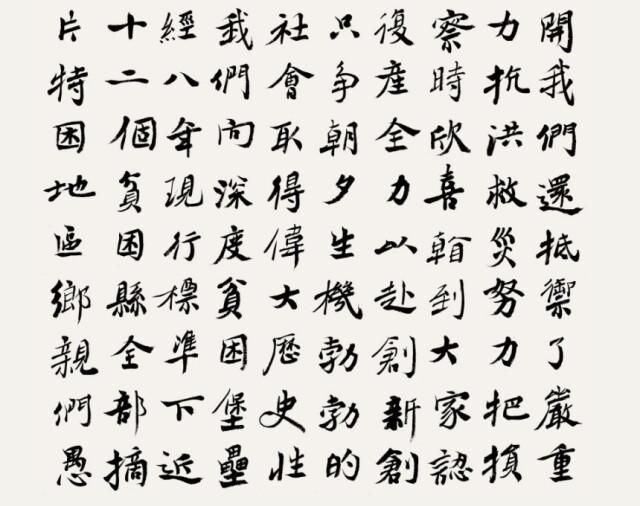 開我們還抵禦了嚴重
力抗洪救災努力把損
察時欣喜看到大家認
復產全力以赴創新創
只爭朝夕生機勃勃的
社會取得偉大歷史性
我們向深度貧困堡壘
經八年現行標準下近
十二個貧困縣全部摘
片特困地區鄉親們愚